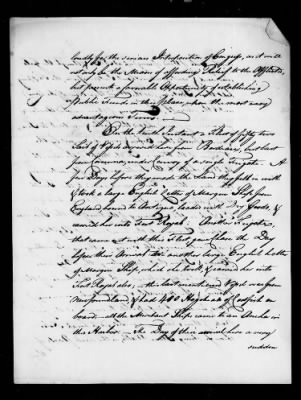 loudly for the serious Interposition of Congress, as it will
not only be the Means of affording Relief to the Afflicted,
but present a favorable Opportunity of establishing
a Public Friends in this Place, upon the most very
advantageous Terms.
On the Instant a Fleet of fifty two
Sail of Vessels arrived here from Bordeaux, but last
from under Convoy of a single Frigate. A
few Days before they made the Land they fell in with
& took a large English Letter of Marque Ship from
England bound to Antigua laden with Dry Goods, &
carried her into Port Royal. Another Frigate
that came out with this Fleet, the Day
before their Arrival took another large English Letter
of Marque Ship, which she took & carried her into
Port Royal also, the last mentioned Vessel was from
Newfoundland & had 400 Hogsheads of Codfish on
board all the Merchant Ships came to an Anchor in
this Harbor. The Day of their arrival here a very
sudden